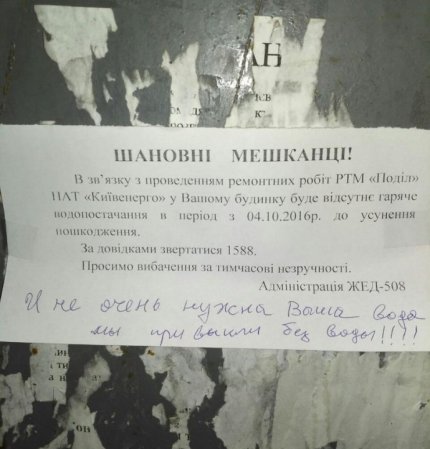 АН
ШАНОВНІ МЕШКАНЦІ!
В зв'язку з проведенням ремонтних робіт РТМ «Поділ»
ПАТ «Київенерго» у Вашому будинку буде відсутнє гаряче
водопостачання в період з 04.10.2016р. до усунення
пошкодження.
За довідками звертатися 1588.
Просимо вибачення за тимчасові незручності.
Адміністрація ЖЕД-508
И не очень нужна Ваша вода
мы привыкли без воды!!!!